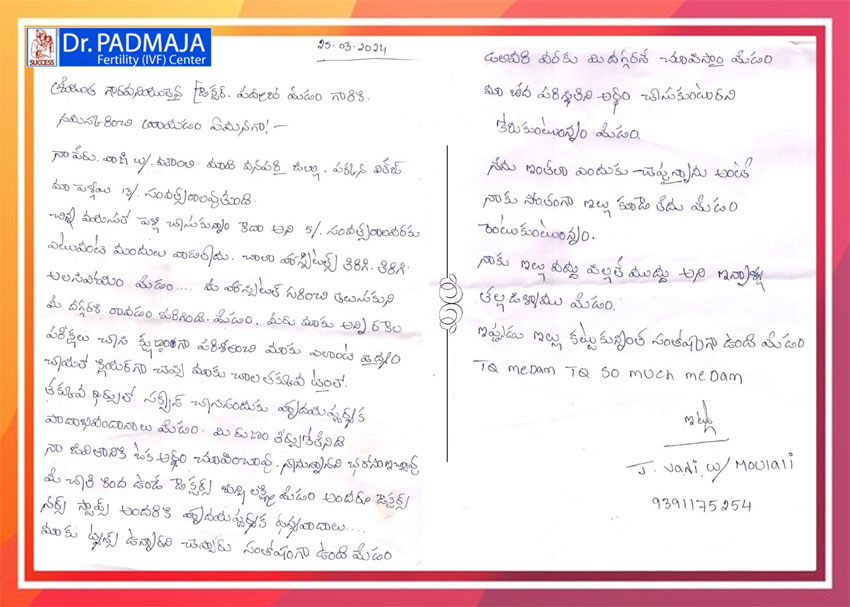 SUCCESS
Dr. PADMAJA
Fertility (IVF) Center
25-03-2024
శ్రీయుత గౌరవనీయులైన డాక్టర్. పద్మజ మేడం గారికి
నమస్కరించి రాయడం ఏమనగా!-
నా పేరు. వాణి w/. మౌలాలి. మాది వనపర్తి జిల్లా, పక్కన విలేజ్
మా పెళ్ళయి 13/. సంవత్సరాలవుతుంది.
చిన్న వయసులో పెళ్లి చేసుకున్నాం కదా అని 5/. సంవత్సరాలవరకు
ఎటువంటి మందులు వాడలేదు. చాలా హాస్పిటల్స్ తిరిగి. తిరిగి.
అలసిపోయాం మేడం.... మీ హాస్పిటల్ గురించి తెలుసుకుని
మీ దగ్గరికి రావడం జరిగింది. మేడం, మీరు మాకు అన్ని రకాల
పరీక్షలు చేసి క్షుణ్ణంగా పరిశీలించి మాకు ఎలాంటి వైద్యం
చేయాలో క్లియర్‌గా చెప్పి మాకు చాల తక్కువ టైంలో.
తక్కువ ఖర్చులో సక్సెస్ చేసినందుకు హృదయపూర్వక
పాదాభివందనాలు మేడం. మీ రుణం తీర్చుకోలేనిది
నా జీవితానికి ఒక అర్థం చూపించారు.
మీ చేతి కింద ఉండే డాక్టర్స్ లక్ష్మి మేడం అందరూ డాక్టర్స్
నర్స్ స్టాఫ్స్ అందరికి హృదయపూర్వక ధన్యవాదాలు....
మాకు ట్విన్స్ ఉన్నారని చెప్పారు సంతోషంగా ఉంది మేడం
డెలివరి వరకు మీ దగ్గరనే చూపిస్తాం మేడం
మా పేద పరిస్థితిని అర్థం చేసుకుంటారని
కోరుకుంటున్నాం మేడం.
నేను ఇంతలా ఎందుకు చెప్తున్నాను అంటే
నాకు సొంతంగా ఇల్లు కూడా లేదు మేడం
రెంటుకుంటున్నాం.
నాకు ఇల్లు వద్దు పిల్లలే ముద్దు అని ఇన్నాళ్ళు
తల్లడిల్లాము మేడం.
ఇప్పుడు ఇల్లు కట్టుకున్నంత సంతోషంగా ఉంది మేడం
TQ meDAm TQ so much meDAM
ఇట్లు
J. Vani. w/ MOUlAli
9391175254